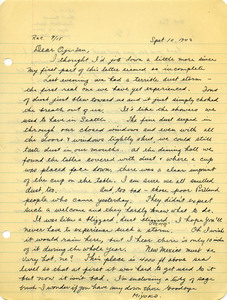 Rec. 9/18
Sept. 16, 1942
Dear
I thought I'd jot down a little more since
my first part of this letter seemed so incomplete.
Last evening we had a terrible dust storm -
the first real one we have yet experienced. Tons
of dust just blew toward us and it just simply choked
the breath out of us. It's like the showers we
used to have in Seattle. The fine dust seeped in
through our closed windows and even with all
the doors & windows tightly shut we could still
taste dust in our mouths. At the dining hall we
found the tables covered with dust & where a cup
was placed face down, there was a clean imprint
of the cup on the table. I am sure we all swallowed
dust too. And too bad - those poor Portland
people who came yesterday. They didn't expect
such a welcome and they hardly knew what to do.
It was like a blizzard - dust blizzard. I hope you'll
never have to experience such a storm. Oh I wish
it would rain here, but I hear there is only inches
of it during the whole year. New Mexico must be
very hot, no? This place is ft above sea
level so that at first it was hard to get used to it
but now it isn't bad. I'm enclosing a bit of sage
brush - I wonder if you have any down there. Goodbye
Miyoko.